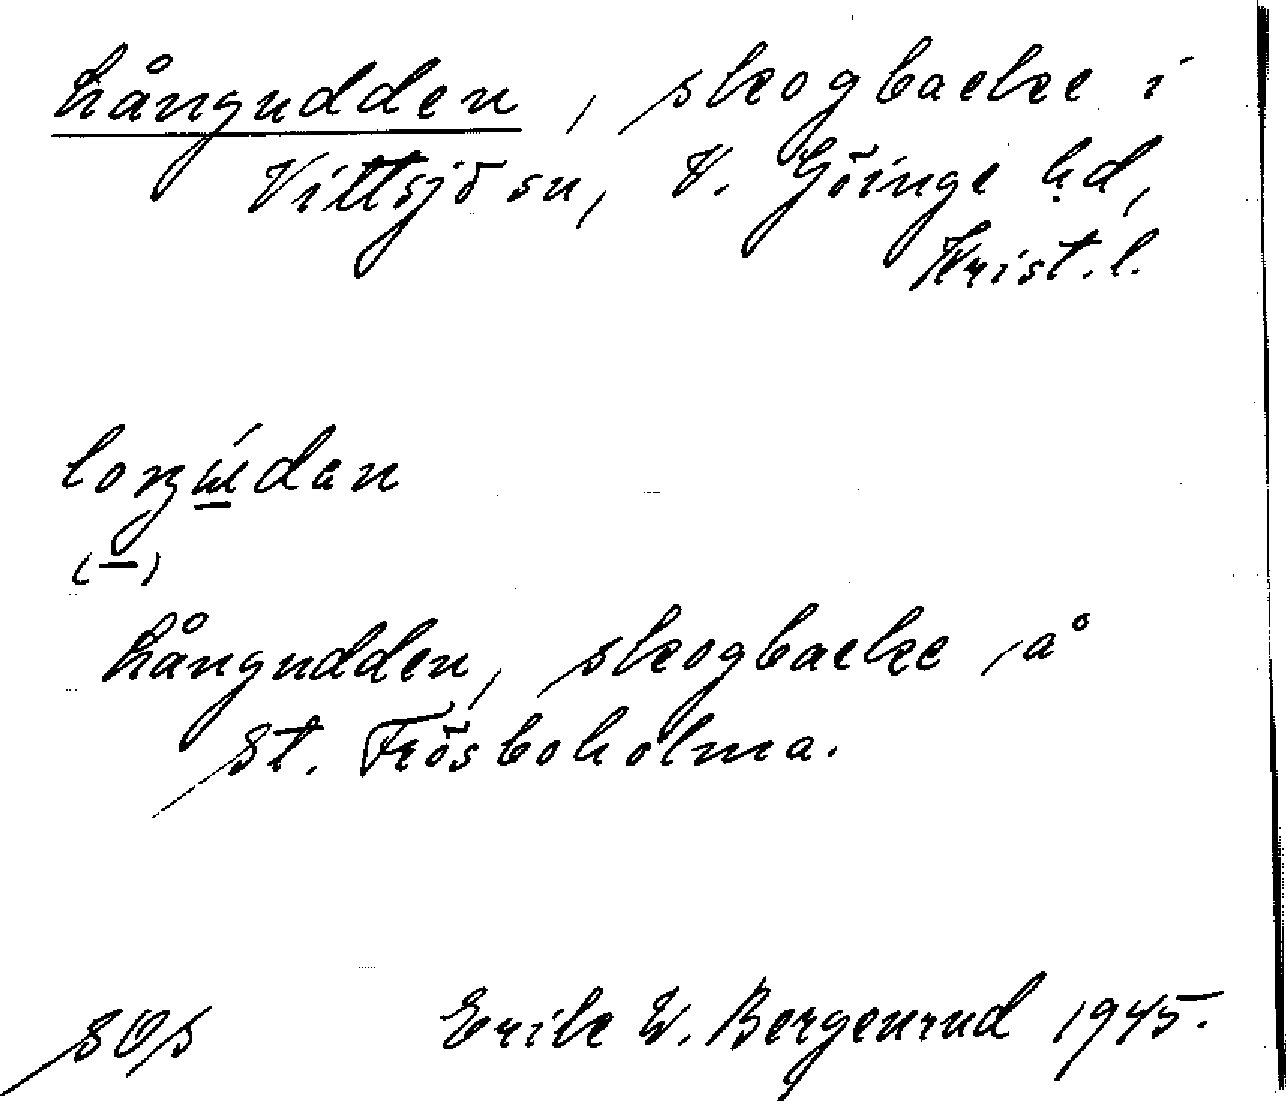 Långudden, skogbacke i
Vittsjö sn, V. Göinge hd,
Krist. l.
(–)
Långudden, skogbacke å
St. Frösboholma.
SOS Erik W. Bergenrud 1945.